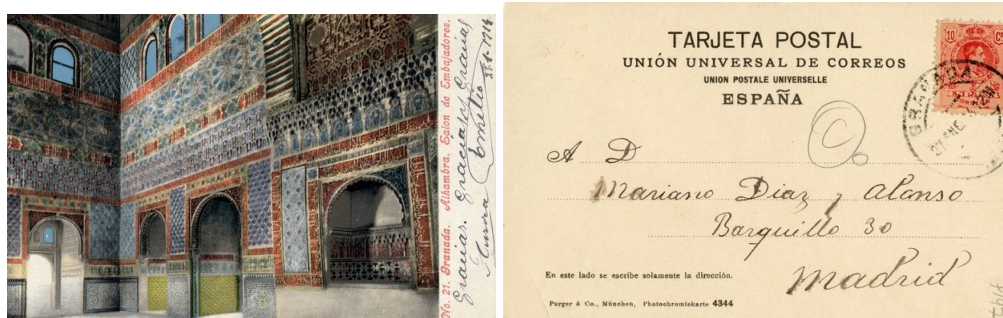 No. 21. Granada. Alhambra. Salon de Embajadores.
Gracias. Gracias y Gracias
Emilio
TARJETA POSTAL
UNIÓN UNIVERSAL DE CORREOS
UNION POSTALE UNIVERSELLE
ESPAÑA
10 Cs
GRANADA
A D
Mariano Diaz y Alonso
Barquillo 30
Madrid
En este lado se escribe solamente la dirección.
Purger & Co., München, Photochromiekarte 4344